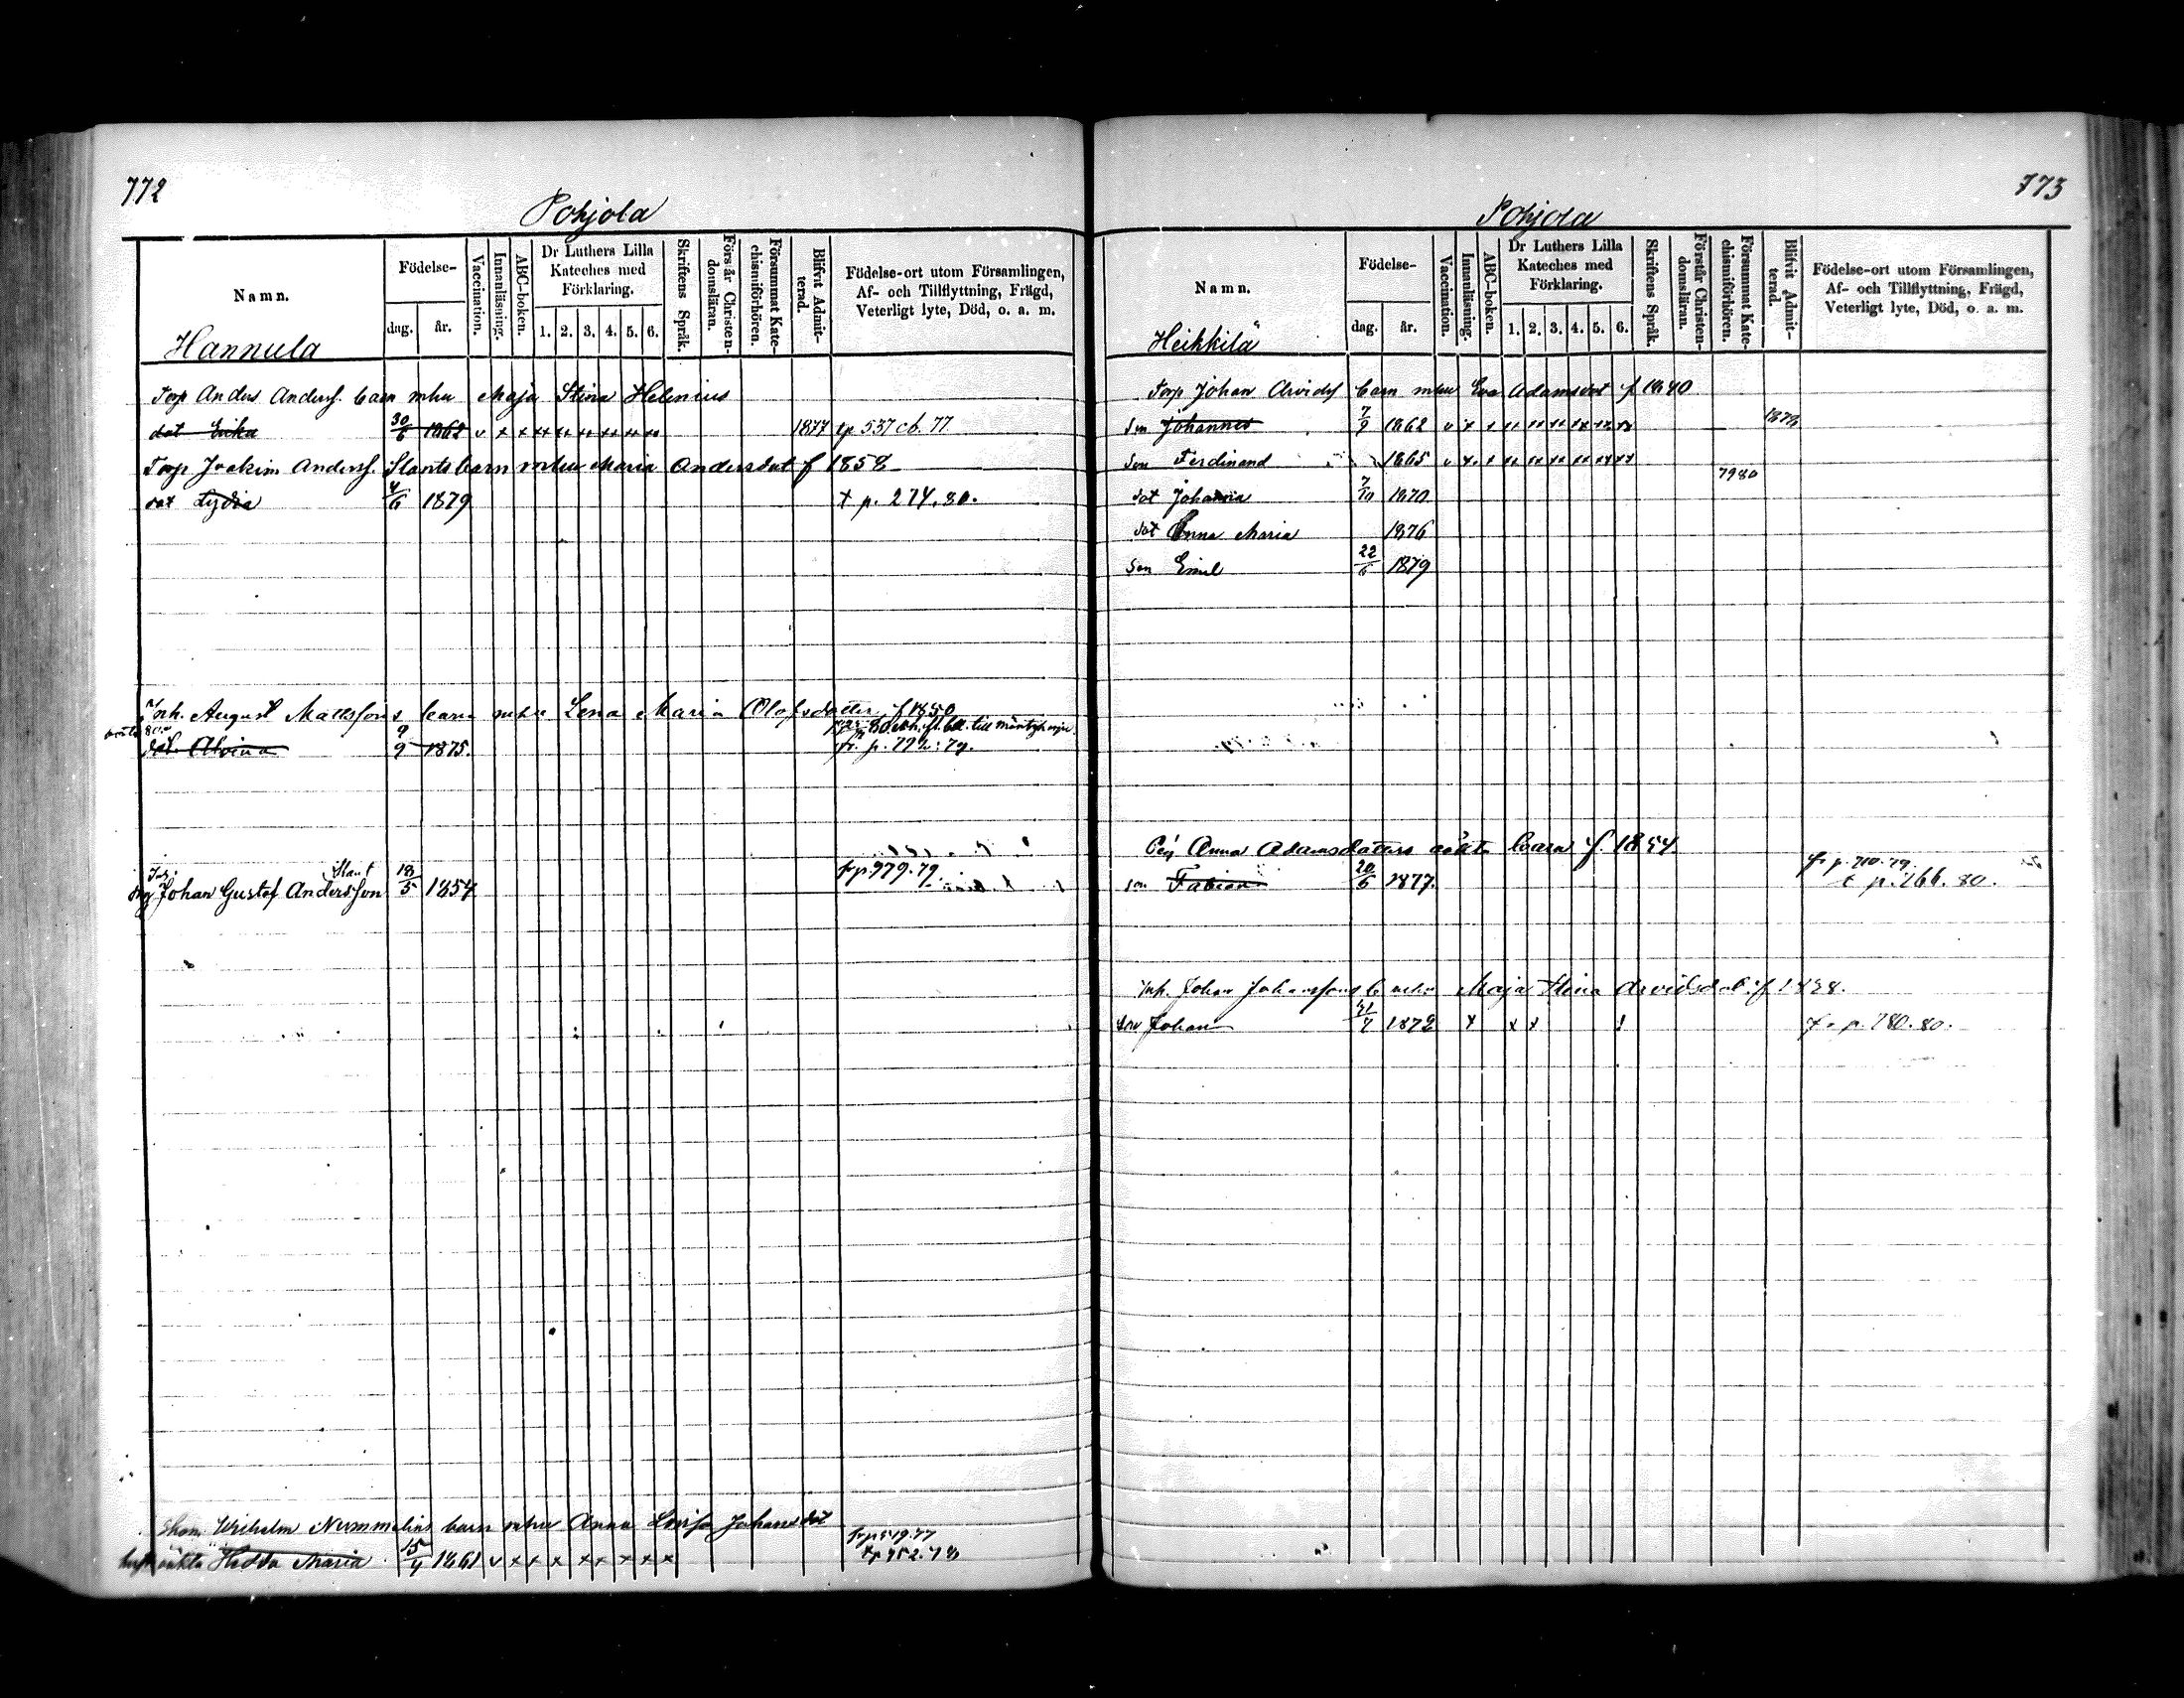 772
Pohjola
Namn.
Födelse-
dag.
år.
Vaccination.
Innanläsning.
ABC-boken.
Dr Luthers Lilla
Kateches med
Förklaring.
1. 2. 3. 4. 5. 6.
Skriftens Språk.
Förstår Christen-
domsläran.
Försummat Kate-
chismiförhören.
Blifvit Admit-
terad.
Födelse-ort utom Församlingen,
Af- och Tillflyttning, Frägd,
Veterligt lyte, Död, o. a. m.
Hannula
Torp Anders Andersf. barn mhu Maja Stina Helenius
dot Erika 30/6 1862 v x x x x x x x x 1877 tp 537 cb. 77
Torp Joakim Andersf. Slants barn mhu Maria Andersdot f 1858
dot Lydia 4/6 1879 t p. 274. 80.
Inh. August Mattssons barn mhu Lena Maria Olofsdotter f 1850
dot. Alvina 9/9 1875. fr. p. 792. 79.
Johan Gustaf Andersson Slant 18/5 1854 frp 979. 79.
Wilhelm Nummelins barn mhu Anna Lovisa Johansdot
oäkta Hedda Maria 15/4 1861 v x x x x x x x x frp 519. 77
tp 952. 78
773
Pohjola
Namn.
Födelse-
dag.
år.
Vaccination.
Innanläsning.
ABC-boken.
Dr Luthers Lilla
Kateches med
Förklaring.
1. 2. 3. 4. 5. 6.
Skriftens Språk.
Förstår Christen-
domsläran.
Försummat Kate-
chismiförhören.
Blifvit Admit-
terad.
Födelse-ort utom Församlingen,
Af- och Tillflyttning, Frägd,
Veterligt lyte, Död, o. a. m.
Heikkilä
Torp Johan Arvidsf barn mhu Eva Adamsdot f 1840
Son Johannes 7/9 1862 v x x x x x x x x
Son Ferdinand 1865 v x x x x x x x x
7980
dot Johanna 7/10 1870
dot Anna Maria 1876
Son Emil 22/6 1879
Pig Anna Adamsdotters oäkta barn f. 1854.
son Fabian 20/6 1877. fr p. 710. 79.
t p. 166. 80.
Inh. Johan Johanssons b mhu Maja Stina Arvidsdot f 1838.
son Johan 1872 x x x fr p. 780. 80.